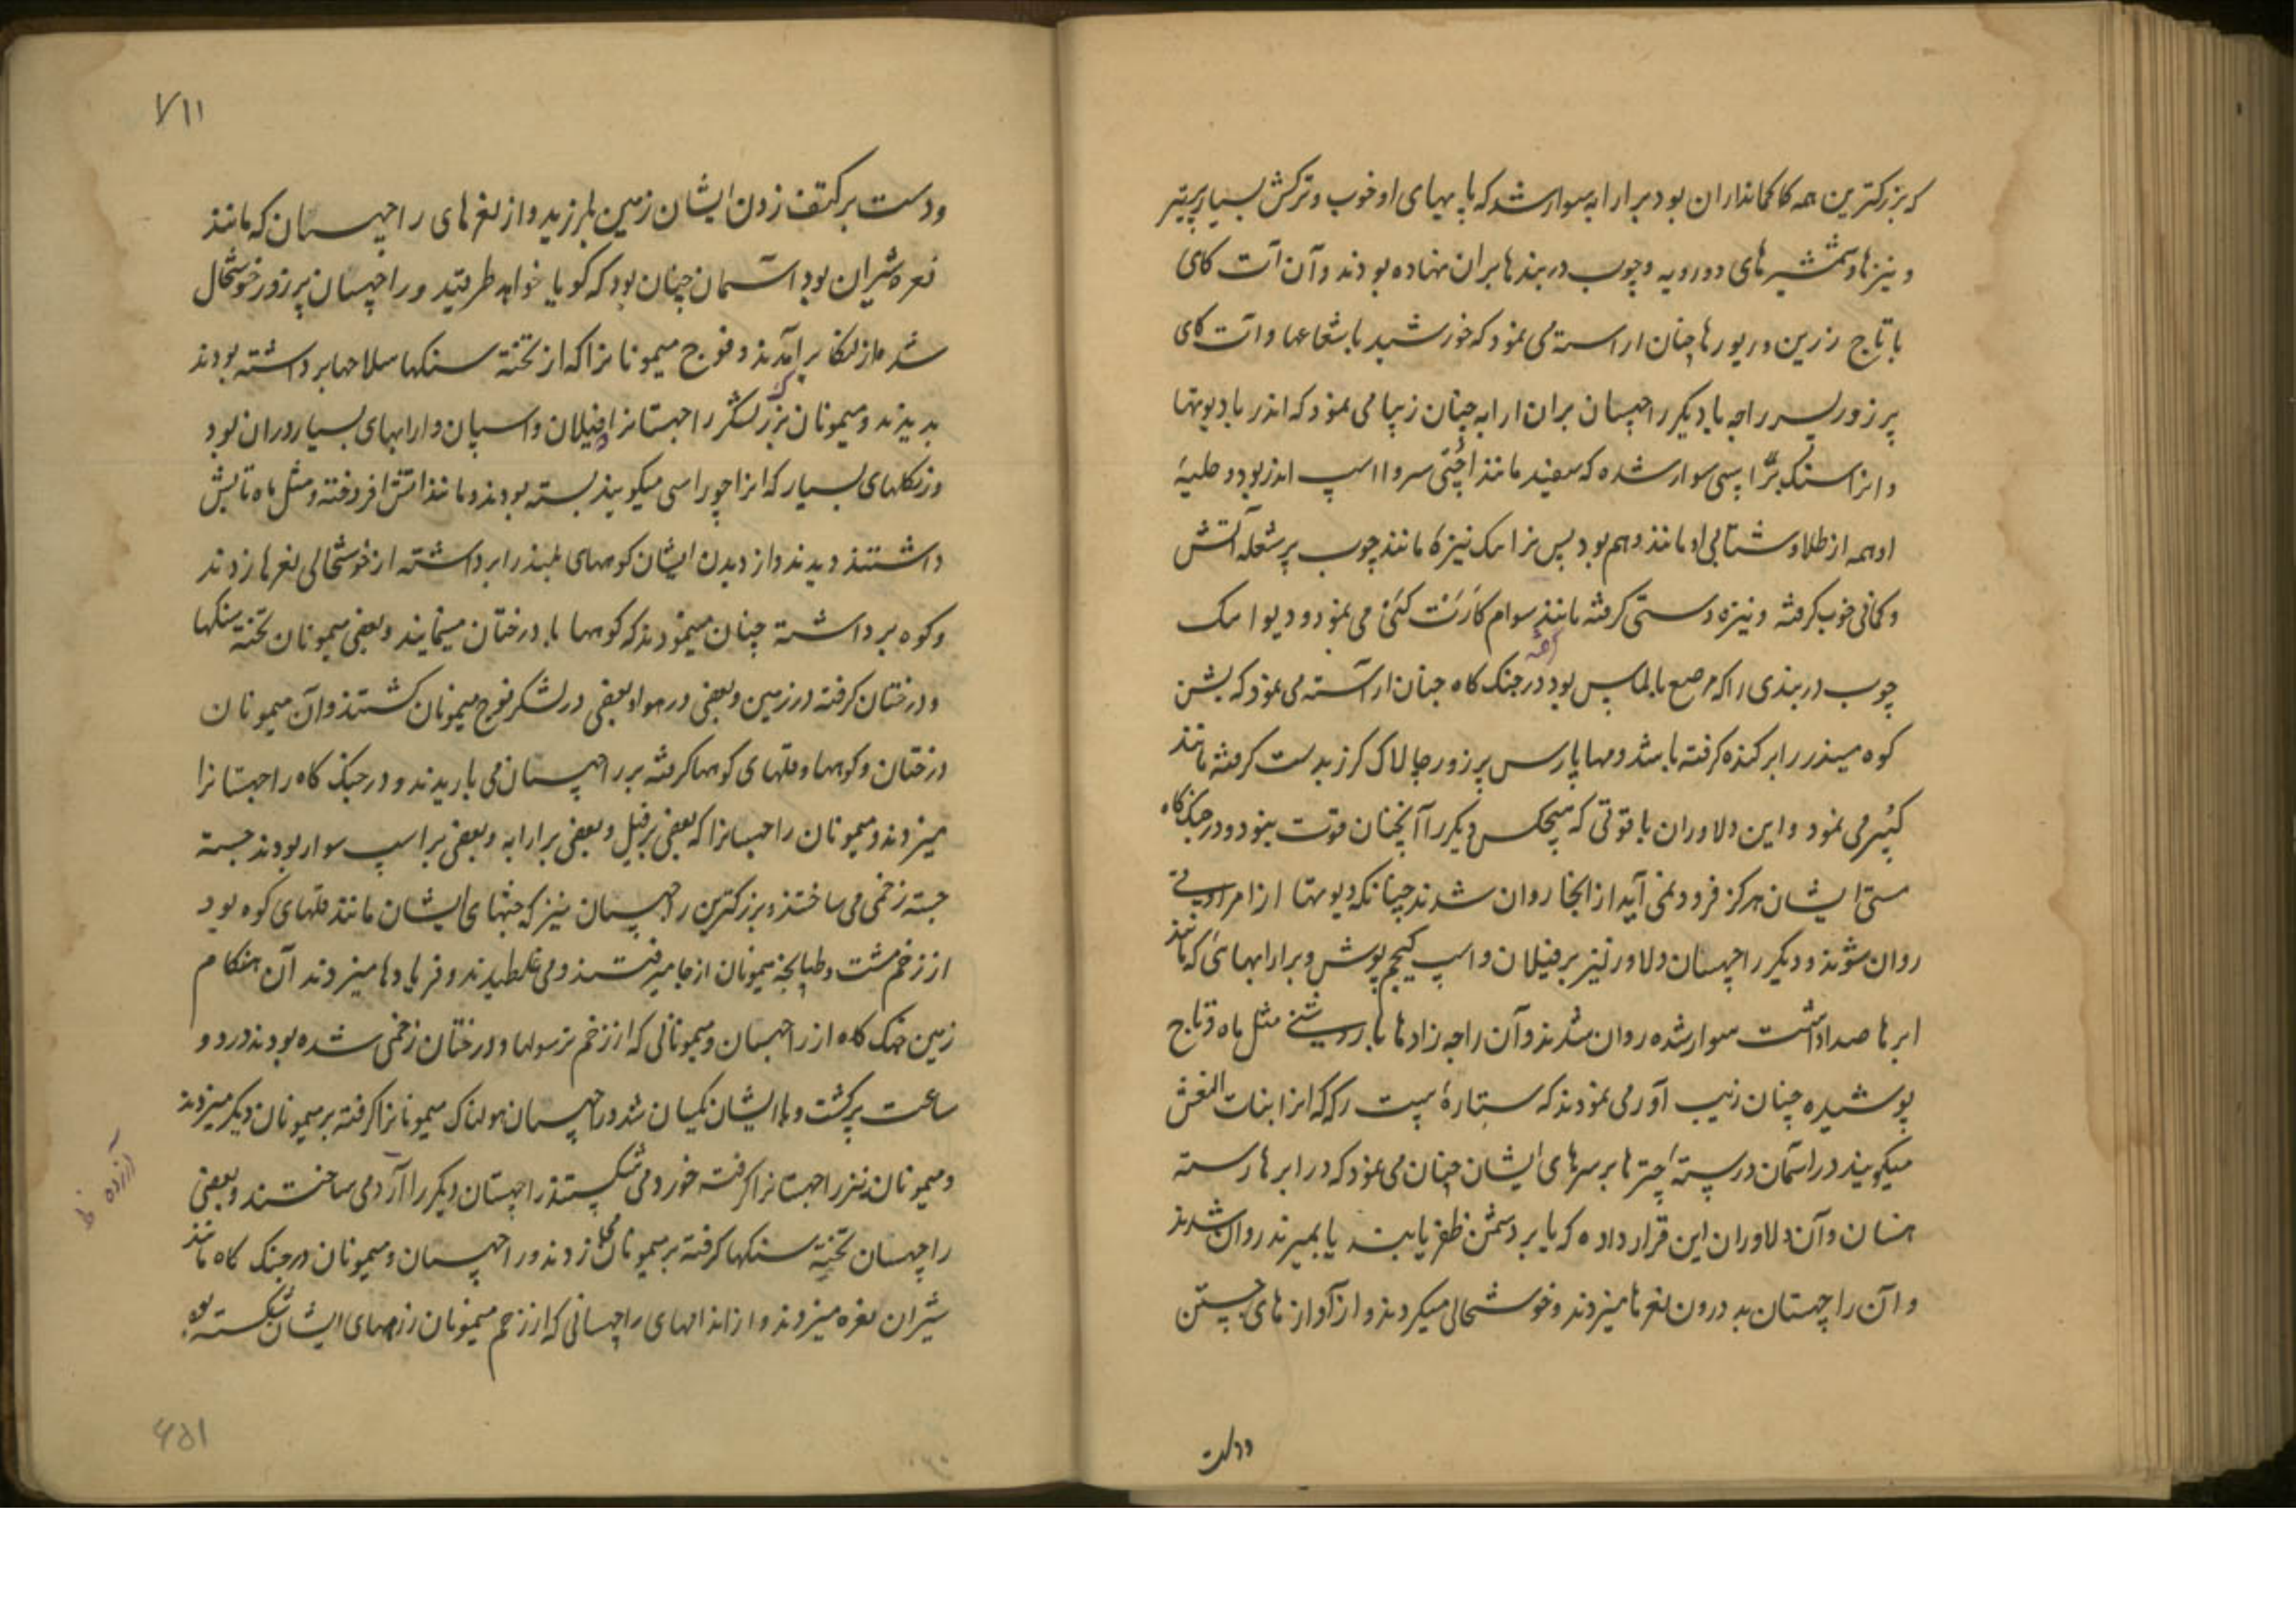 که بزرگترین همه کا کمانداران بود برارابه سوار شد که پا بهیای او خوب و ترکش بسیار پر تیر
و نیزها و شمشیرهای دورویه و چوب دربندها بران نهاده بودند و آن آت کای
با تاج زرین و زیورها چنان اراسته می نمود که خورشید با شعاعها و ات کای
پرزور پسر راجه با دیگر راچهسان بران ارابه چنان زیبا می نمود که اندر با دیوتها
و نرانتک بر اسپی سوار شده که سفید مانند اچئی سروا اسپ اندر بود و حلیهٔ
او همه از طلا و شتابی او مانند وهم بود پس نرانتک نیزه کا مانند چوب پر شعله آتش
و کمانی خوب گرفته و نیزه دستی گرفته مانند سوام کارتت کئی می نمود و دیوانتک
چوب دربندی را که مرصع بالماس بود در جنگ کاه چنان اراسته می نمود که بشن
کوه میندر را بر کنده گرفته باشد و مهاپارس پرزور چالاک گرز بدست گرفته مانند
کبیر می نمود و این دلاوران با قوتی که هیچکس دیگر را آنچنان قوت نبود و در جنگ کاه
مستی ایشان هرگز فرود نمی آید از انجا روان شدند چنانکه دیوتها از امراوتی
روان شوند و دیگر راچهسان دلاور نیز بر فیلان و اسپ کیجم پوش و برارابهائی که مانند
ابرها صدا داشت سوار شده روان شدند و آن راجه زادها با روشنی مثل ماه و تاج
پوشیده چنان زیب آور می نمودند که ستارهٔ سپت رکه که انرا بنات النعش
میگویند در اسمان درستهٔ چترها بر سرهای ایشان چنان می نمود که در ابرها رسته
هنسان و آن دلاوران این قرار داده که یا بر دشمن ظفر یابند یا بمیرند روان شدند
و آن راچهسان بد درون نعرها میزدند و خوشحالی میکردند و از آوازهای جستن
ودست
٧١١
و دست بر کتف زدن ایشان زمین بلرزید و از نعرهای راچهسان که مانند
نعره شیران بود اسمان چنان بود که گویا خواهد طرقید و راچهسان پرزور خوشحال
شده از لنکا برآمدند و فوج میمونانرا که از تخته سنگها سلاحها برداشته بودند
بدیدند و میمونان بزرگ لشکر راچهسانرا که فیلان و اسپان و ارابهای بسیار در ان بود
و زنگلهای بسیار که انرا چوراسی میگویند بسته بودند و مانند اتش افروخته و مثل ماه تابش
داشتند دیدند و از دیدن ایشان کوههای بلند را برداشته از خوشحالی نعرها زدند
و کوه برداشته چنان مینمودند که کوهها با درختان مینمایند و بعضی میمونان تخته سنگها
و درختان گرفته در زمین و بعضی در هوا و بعضی در لشکر فوج میمونان گشتند و آن میمونان
درختان و کوهها و قلهای کوهها گرفته بر راچهسان می باریدند و در جنگ کاه راچهسانرا
میزدند و میمونان راچهسانرا که بعضی بر فیل و بعضی بر ارابه و بعضی بر اسپ سوار بودند جسته
جسته زخمی می ساختند و بزرگترین راچهسان نیز که جثهای ایشان مانند قلهای کوه بود
از زخم مشت و طپانچه میمونان از جا میرفتند و می غلطیدند و فریادها میزدند آن هنگام
زمین جنگ کاه از راچهسان و میمونانی که از زخم ترسولها و درختان زخمی شده بودند در دو
ساعت پر گشت و با ایشان یکسان شد و راچهسان هولناک میمونانرا گرفته بر میمونان دیگر میزدند
و میمونان نیز راچهسانرا گرفته خورد می شکستند راچهسان دیگر را آرد می ساختند و بعضی
راچهسان تخته سنگها گرفته بر میمونان زدند و راچهسان و میمونان در جنگ کاه مانند
شیران نعره میزدند و از اندامهای راچهسانی که از زخم میمونان زرههای ایشان شکسته بود
آزرده
٤٥١